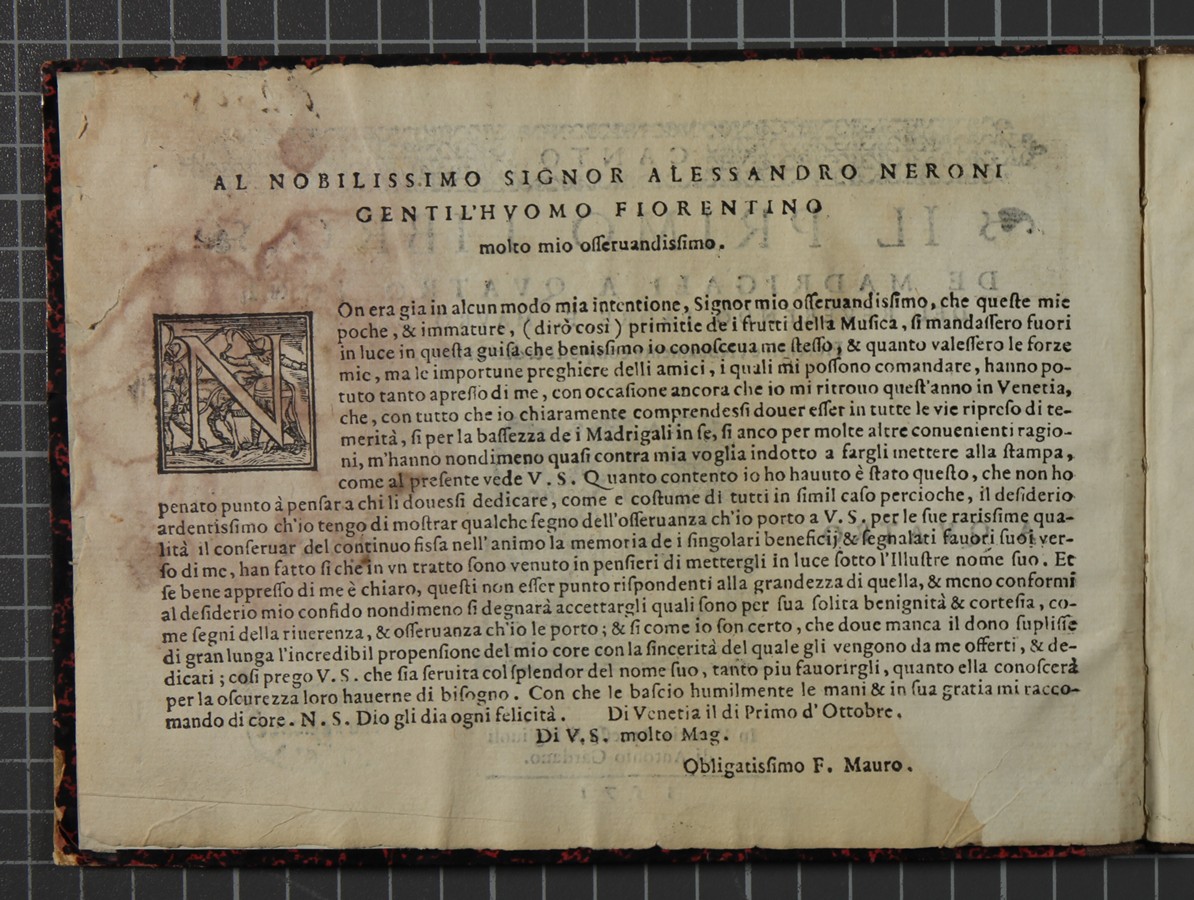 AL NOBILISSIMO SIGNOR ALESSANDRO NERONI
GENTIL'HVOMO FIORENTINO
molto mio oſſeruandiſsimo.
NOn era gia in alcun modo mia intentione, Signor mio oſſeruandiſsimo, che queſte mie
poche, & immature, (dirò cosi) primitie de i frutti della Muſica, ſi mandaſſero fuori
in luce in queſta guiſa che beniſsimo io conoſceua me ſteſſo, & quanto valeſſero le forze
mie, ma le importune preghiere delli amici, i quali mi poſſono comandare, hanno po-
tuto tanto apreſſo di me, con occaſione ancora che io mi ritrouo queſt'anno in Venetia,
che, con tutto che io chiaramente comprendesſi douer eſſer in tutte le vie ripreſo di te-
merità, ſi per la baſſezza de i Madrigali in ſe, ſi anco per molte altre conuenienti ragio-
ni, m'hanno nondimeno quaſi contra mia voglia indotto a fargli mettere alla ſtampa,
come al preſente vede V. S. Quanto contento io ho hauuto è ſtato queſto, che non ho
penato punto à penſar a chi li douesſi dedicare, come e coſtume di tutti in ſimil caſo percioche, il deſiderio
ardentiſsimo ch'io tengo di moſtrar qualche ſegno dell'oſſeruanza ch'io porto a V. S. per le ſue rariſsime qua-
lità il conſeruar del continuo fisſa nell'animo la memoria de i ſingolari beneficij & ſegnalati fauori ſuoi ver-
ſo di me, han fatto ſi che in vn tratto ſono venuto in penſieri di mettergli in luce ſotto l'Illuſtre nome ſuo. Et
ſe bene appreſſo di me è chiaro, queſti non eſſer punto riſpondenti alla grandezza di quella, & meno conformi
al deſiderio mio confido nondimeno ſi degnarà accettargli quali ſono per ſua ſolita benignità & corteſia, co-
me ſegni della riuerenza, & oſſeruanza ch'io le porto; & ſi come io ſon certo, che doue manca il dono ſupliſſe
di gran lunga l'incredibil propenſione del mio core con la ſincerità del quale gli vengono da me offerti, & de-
dicati; coſi prego V. S. che ſia ſeruita col ſplendor del nome ſuo, tanto piu fauorirgli, quanto ella conoſcerà
per la oſcurezza loro hauerne di biſogno. Con che le baſcio humilmente le mani & in ſua gratia mi racco-
mando di core. N. S. Dio gli dia ogni felicità. Di Venetia il di Primo d'Ottobre.
Di V. S. molto Mag.
Obligatiſsimo F. Mauro.